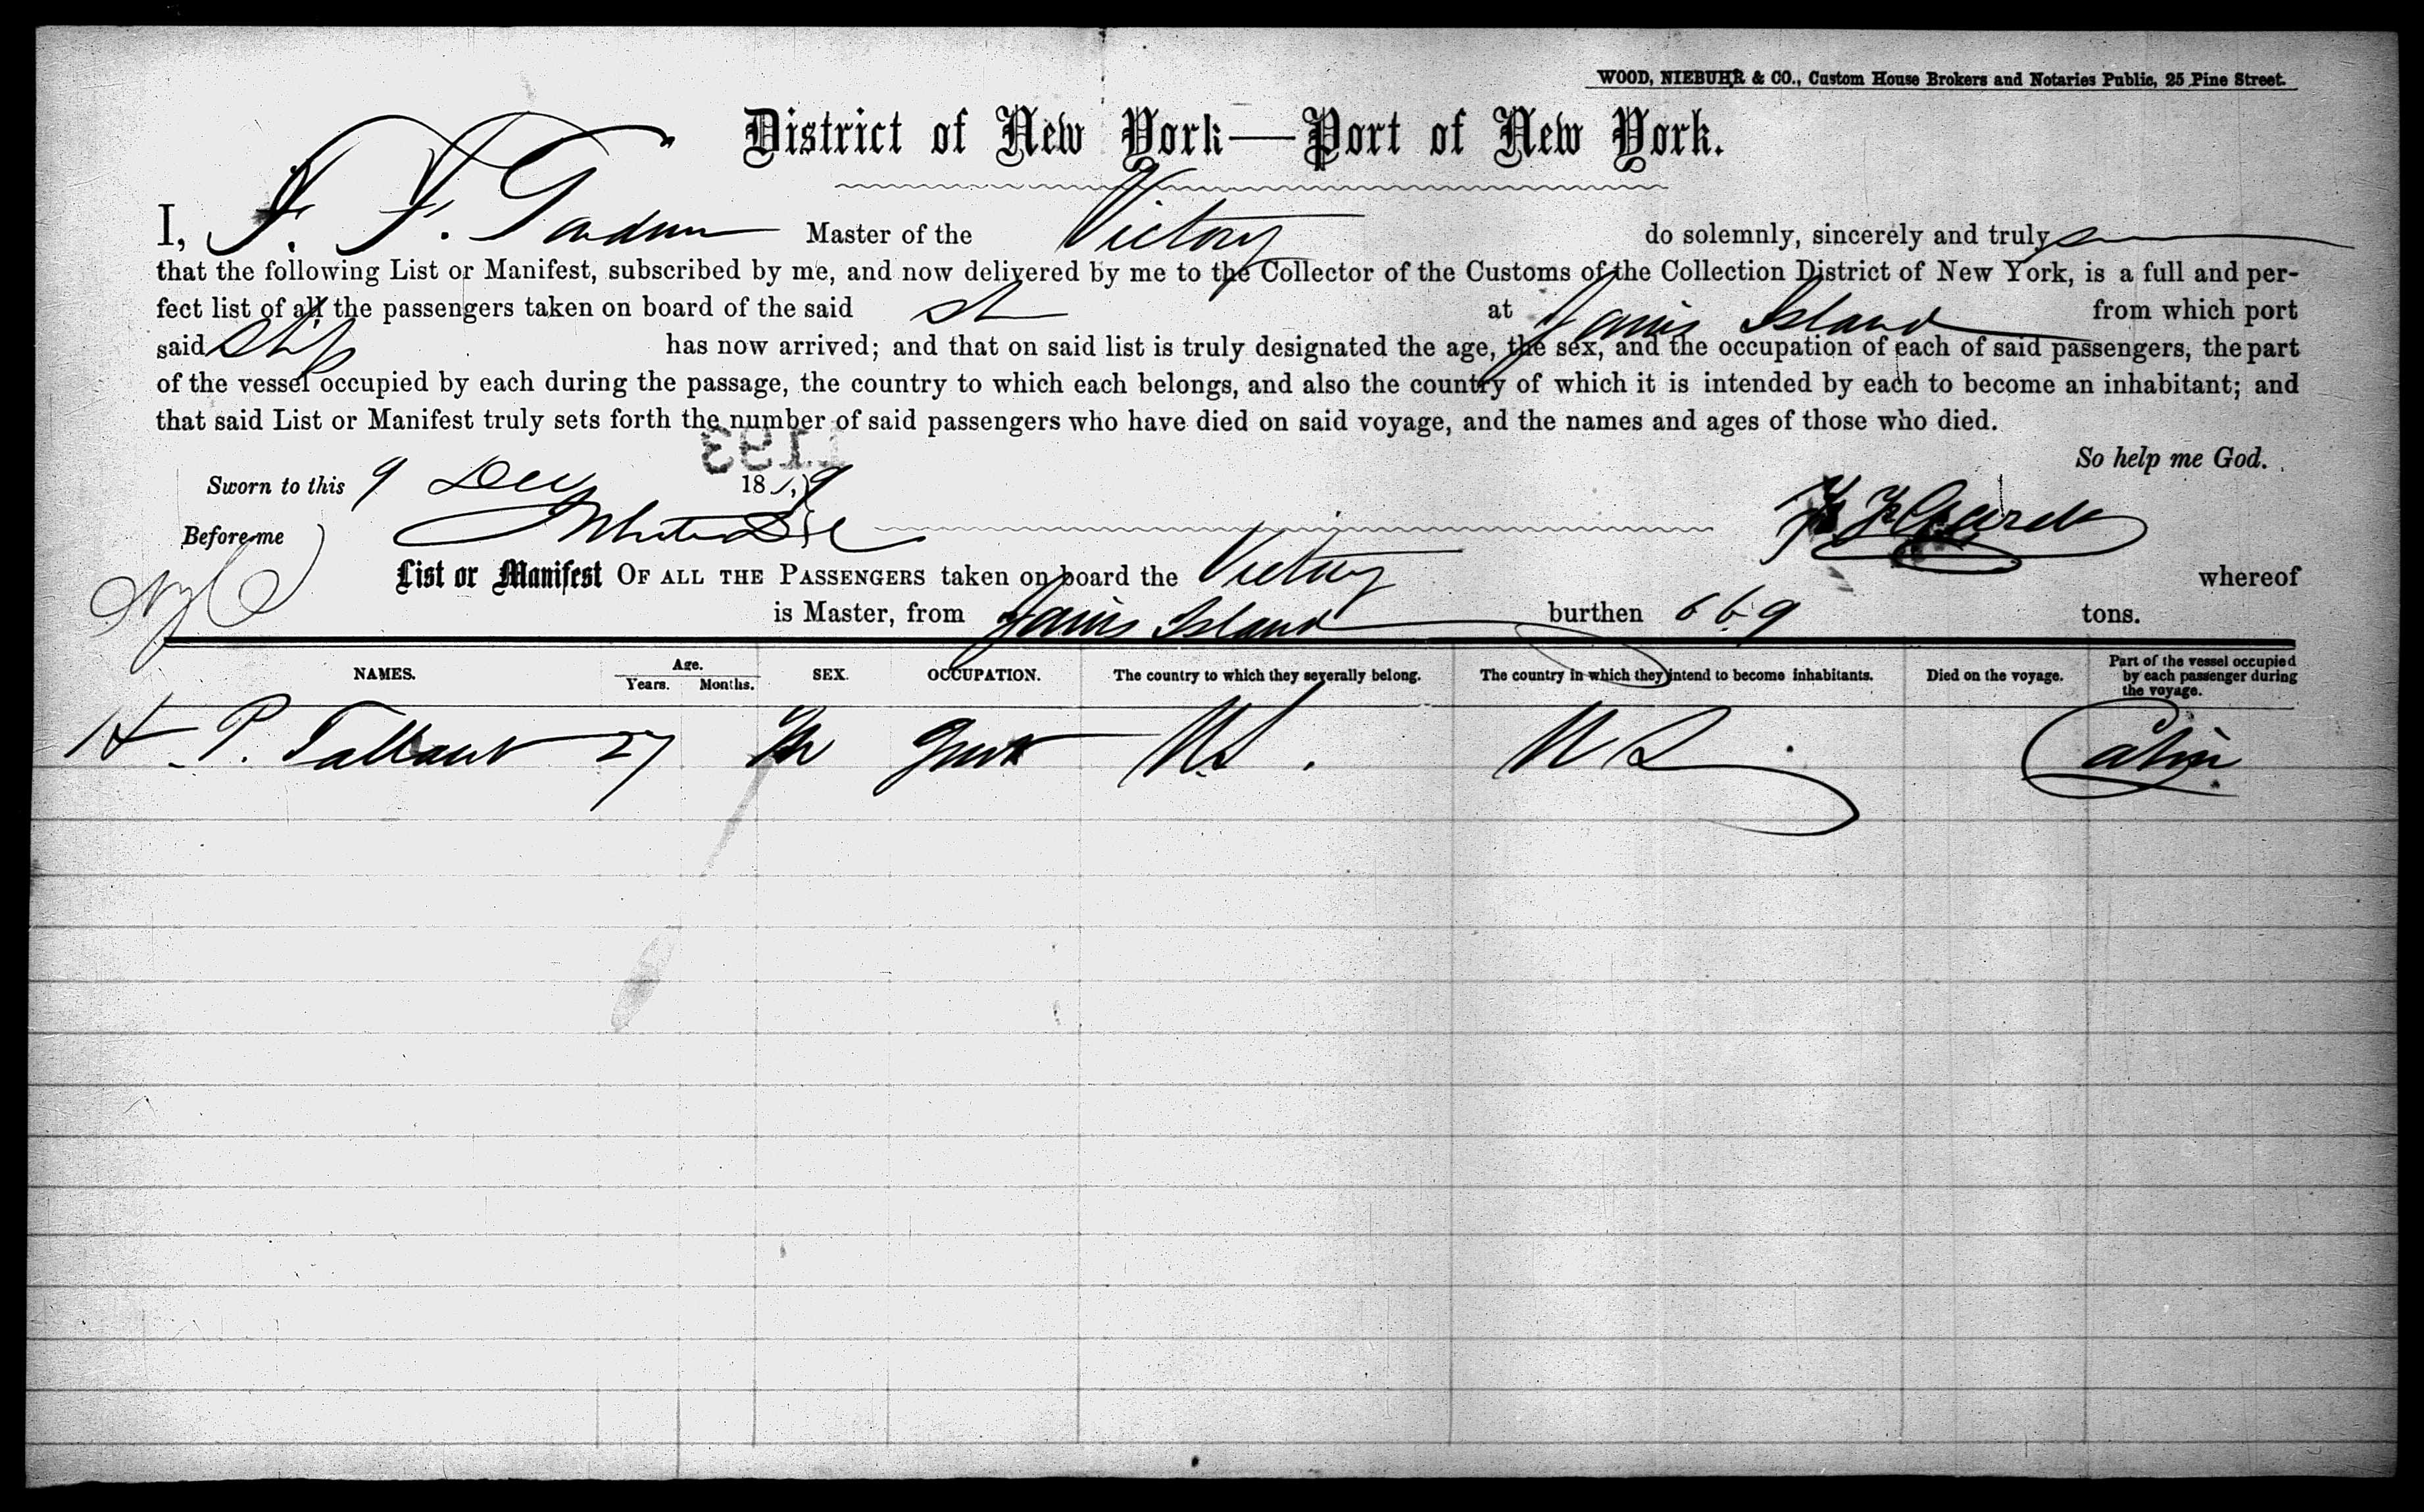 WOOD, NIEBUHR & CO., Custom House Brokers and Notaries Public, 25 Pine Street.
District of New York—Port of New York.
I, F. F. Master of the Victory do solemnly, sincerely and truly
that the following List or Manifest, subscribed by me, and now delivered by me to the Collector of the Customs of the Collection District of New York, is a full and per-
fect list of all the passengers taken on board of the said at Jarvis Island from which port
said Ship has now arrived; and that on said list is truly designated the age, the sex, and the occupation of each of said passengers, the part
of the vessel occupied by each during the passage, the country to which each belongs, and also the country of which it is intended by each to become an inhabitant; and
that said List or Manifest truly sets forth the number of said passengers who have died on said voyage, and the names and ages of those who died.
1193
So help me God.
Sworn to this 9 Dec 18
Before me
List or Manifest OF ALL THE PASSENGERS taken on board the Victory whereof
is Master, from Jarvis Island burthen 669 tons.
NAMES. Age. Years. Months. SEX. OCCUPATION. The country to which they severally belong. The country in which they intend to become inhabitants. Died on the voyage. Part of the vessel occupied by each passenger during the voyage.
H. P. Tallant 27 M Gent U.S. U S Cabin